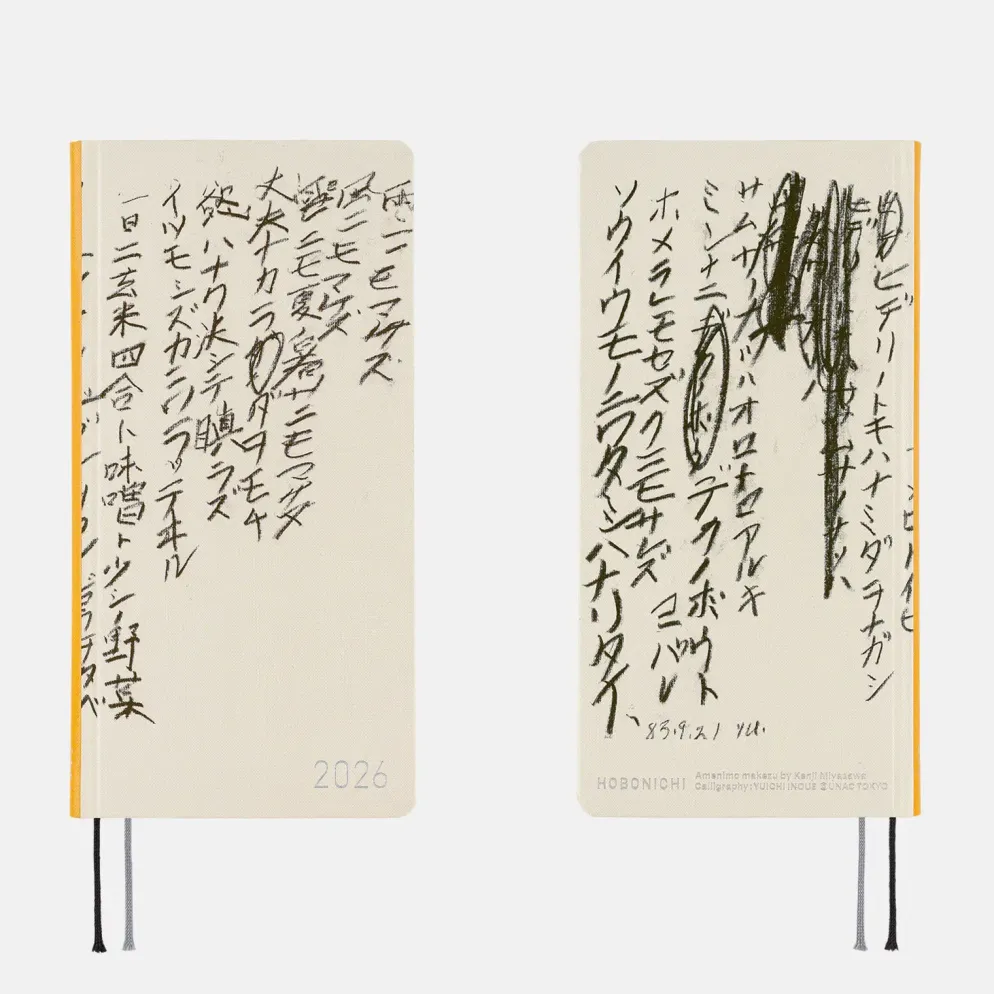 雨ニモマケズ
風ニモマケズ
雪ニモ夏ノ暑サニモマケヌ
丈夫ナカラダヲモチ
慾ハナク决シテ瞋ラズ
イツモシズカニワラッテヰル
一日ニ玄米四合ト味噌ト少シノ野菜
2026
ヒデリノトキハナミダヲナガシ
サムサノナツハオロオロアルキ
ミンナニデクノボウト
ヨバレ
ホメラレモセズクニモサレズ
ソウイウモノニワタシハナリタイ
83.9.21 yu.
HOBONICHI
Amenimo makezu by Kenji Miyazawa
Calligraphy:YUICHI INOUE UNAC TOKYO